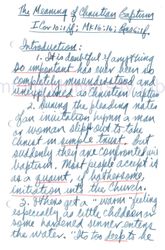 The Meaning of Christian Baptism
I Cor 10:1f; Mk 16:16; Rom 6:1f.
Introduction:
1. It is doubtful if anything
so important has ever been so
completely misunderstood and
unexplained as Christian Baptism
2. During the pleading notes
of an invitation hymn a man
or woman steps out to take
Christ in simple trust, but
suddenly they are confronted with
baptism. Most people accept it
as a quaint, if bothersome,
initiation into the Church.
3. Others get a "warm" feeling
especially as little children or
some hardened sinner enters
the water. "It's too deep to be